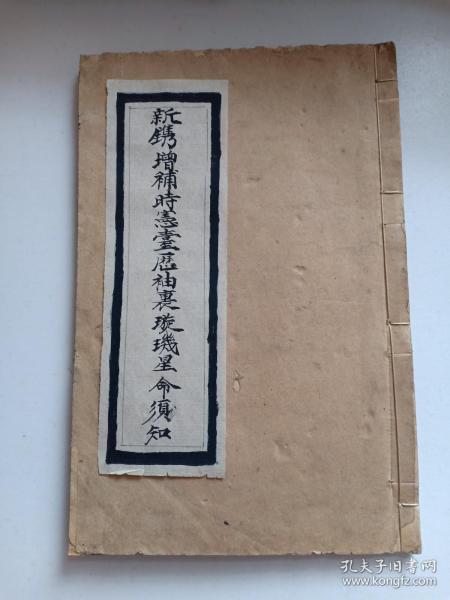 新鐫增補時憲臺歷袖裏璇璣星命須知
孔夫子旧书网
www.kongfz.com